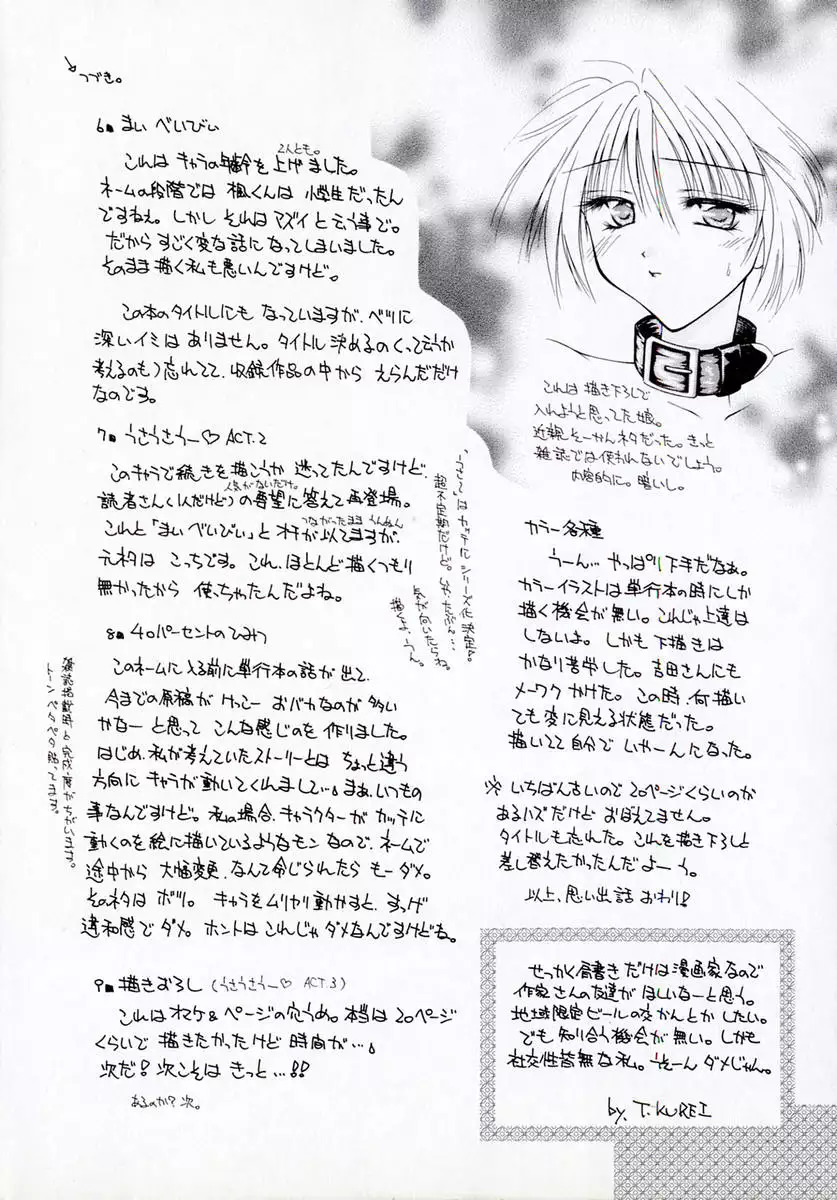 つづき。
6■ まい べいびい
これは キャラの年齢を 上げました。
2人とも。
ネームの段階では 楓くんは 小学生だったん
ですねぇ。しかし それは マズイ と云う事で。
だから すごく変な話に なってしまいました。
そのまま描く私も悪いんですけど。
この本のタイトルにも なっていますが、べつに
深いイミは ありません。タイトル 決めるの(って云うか
考えるのも)忘れてて、収録作品の中から えらんだだけ
なのです。
7■ うさうさうー♡ ACT.2
このキャラで続きを描こうか 迷ってたんですけど、
人気がないだけ。
読者さん(1人だけど)の要望に答えて 再登場。
これと「まい べいびい」と オチが似てますが、
つながったまま うんぬん
元ネタは こっちです。これ、ほとんど描くつもり
無かったから 使っちゃたんだよね。
「うさうー」は カッテに シリーズ化 決定。
超不定期だけど。
気が向いたらね。
描くよ、うん。
8■ 40パーセントのひまわり
このネームに入る前に単行本の話が 出て、
今までの原稿が けっこー おバカなのが 多い
かなー と思って こんな感じのを 作りました。
はじめ、私が考えていたストーリーとは ちょっと違う
方向に キャラが動いてくれまして…。まぁ、いつもの
事なんですけど。私の場合、キャラクターが カッテに
動くのを絵に描いているようなモンなので、ネームで
途中から 大幅変更、なんて命じられたら もーダメ。
そのネタは ボツ。キャラをムリヤリ動かすと、すっげ
違和感で ダメ。ホントは これじゃダメなんですけどね。
雑誌掲載時と完成度がちがいます。
トーン ペタペタ 貼ってます。
9■ 描きおろし (うさうさうー♡ ACT.3)
これはオマケ&ページの穴うめ。本当は 20ページ
くらいで 描きたかったけど 時間が…。
次だ!次こそは きっと…!!
あるのか?次。
これは 描き下ろしで
入れようと思ってた娘。
近親そーかんネタだった。きっと
雑誌では使われないでしょう。
内容的に。暗いし。
カラー各種
うーん… やっぱり下手だなぁ。
カラーイラストは単行本の時にしか
描く機会が無い。これじゃ上達は
しないよ。しかも下描きは
かなり苦労した。吉田さんにも
メーワクかけた。この時、何描い
ても変に見える状態だった。
描いてて自分で いやーんになった。
※ いちばん古いので 20ページくらいのが
あるハズだけど おぼえてません。
タイトルも忘れた。これを描き下ろしと
差し替えたかったんだよー。
以上、思い出話 おわり!
せっかく肩書きだけは漫画家なので
作家さんの友達が ほしいなーと思う。
地域限定ビールの交かんとかしたい。
でも 知り合う機会が無い。しかも
社交性皆無な私。うそーん ダメじゃん。
by. T.KUREI